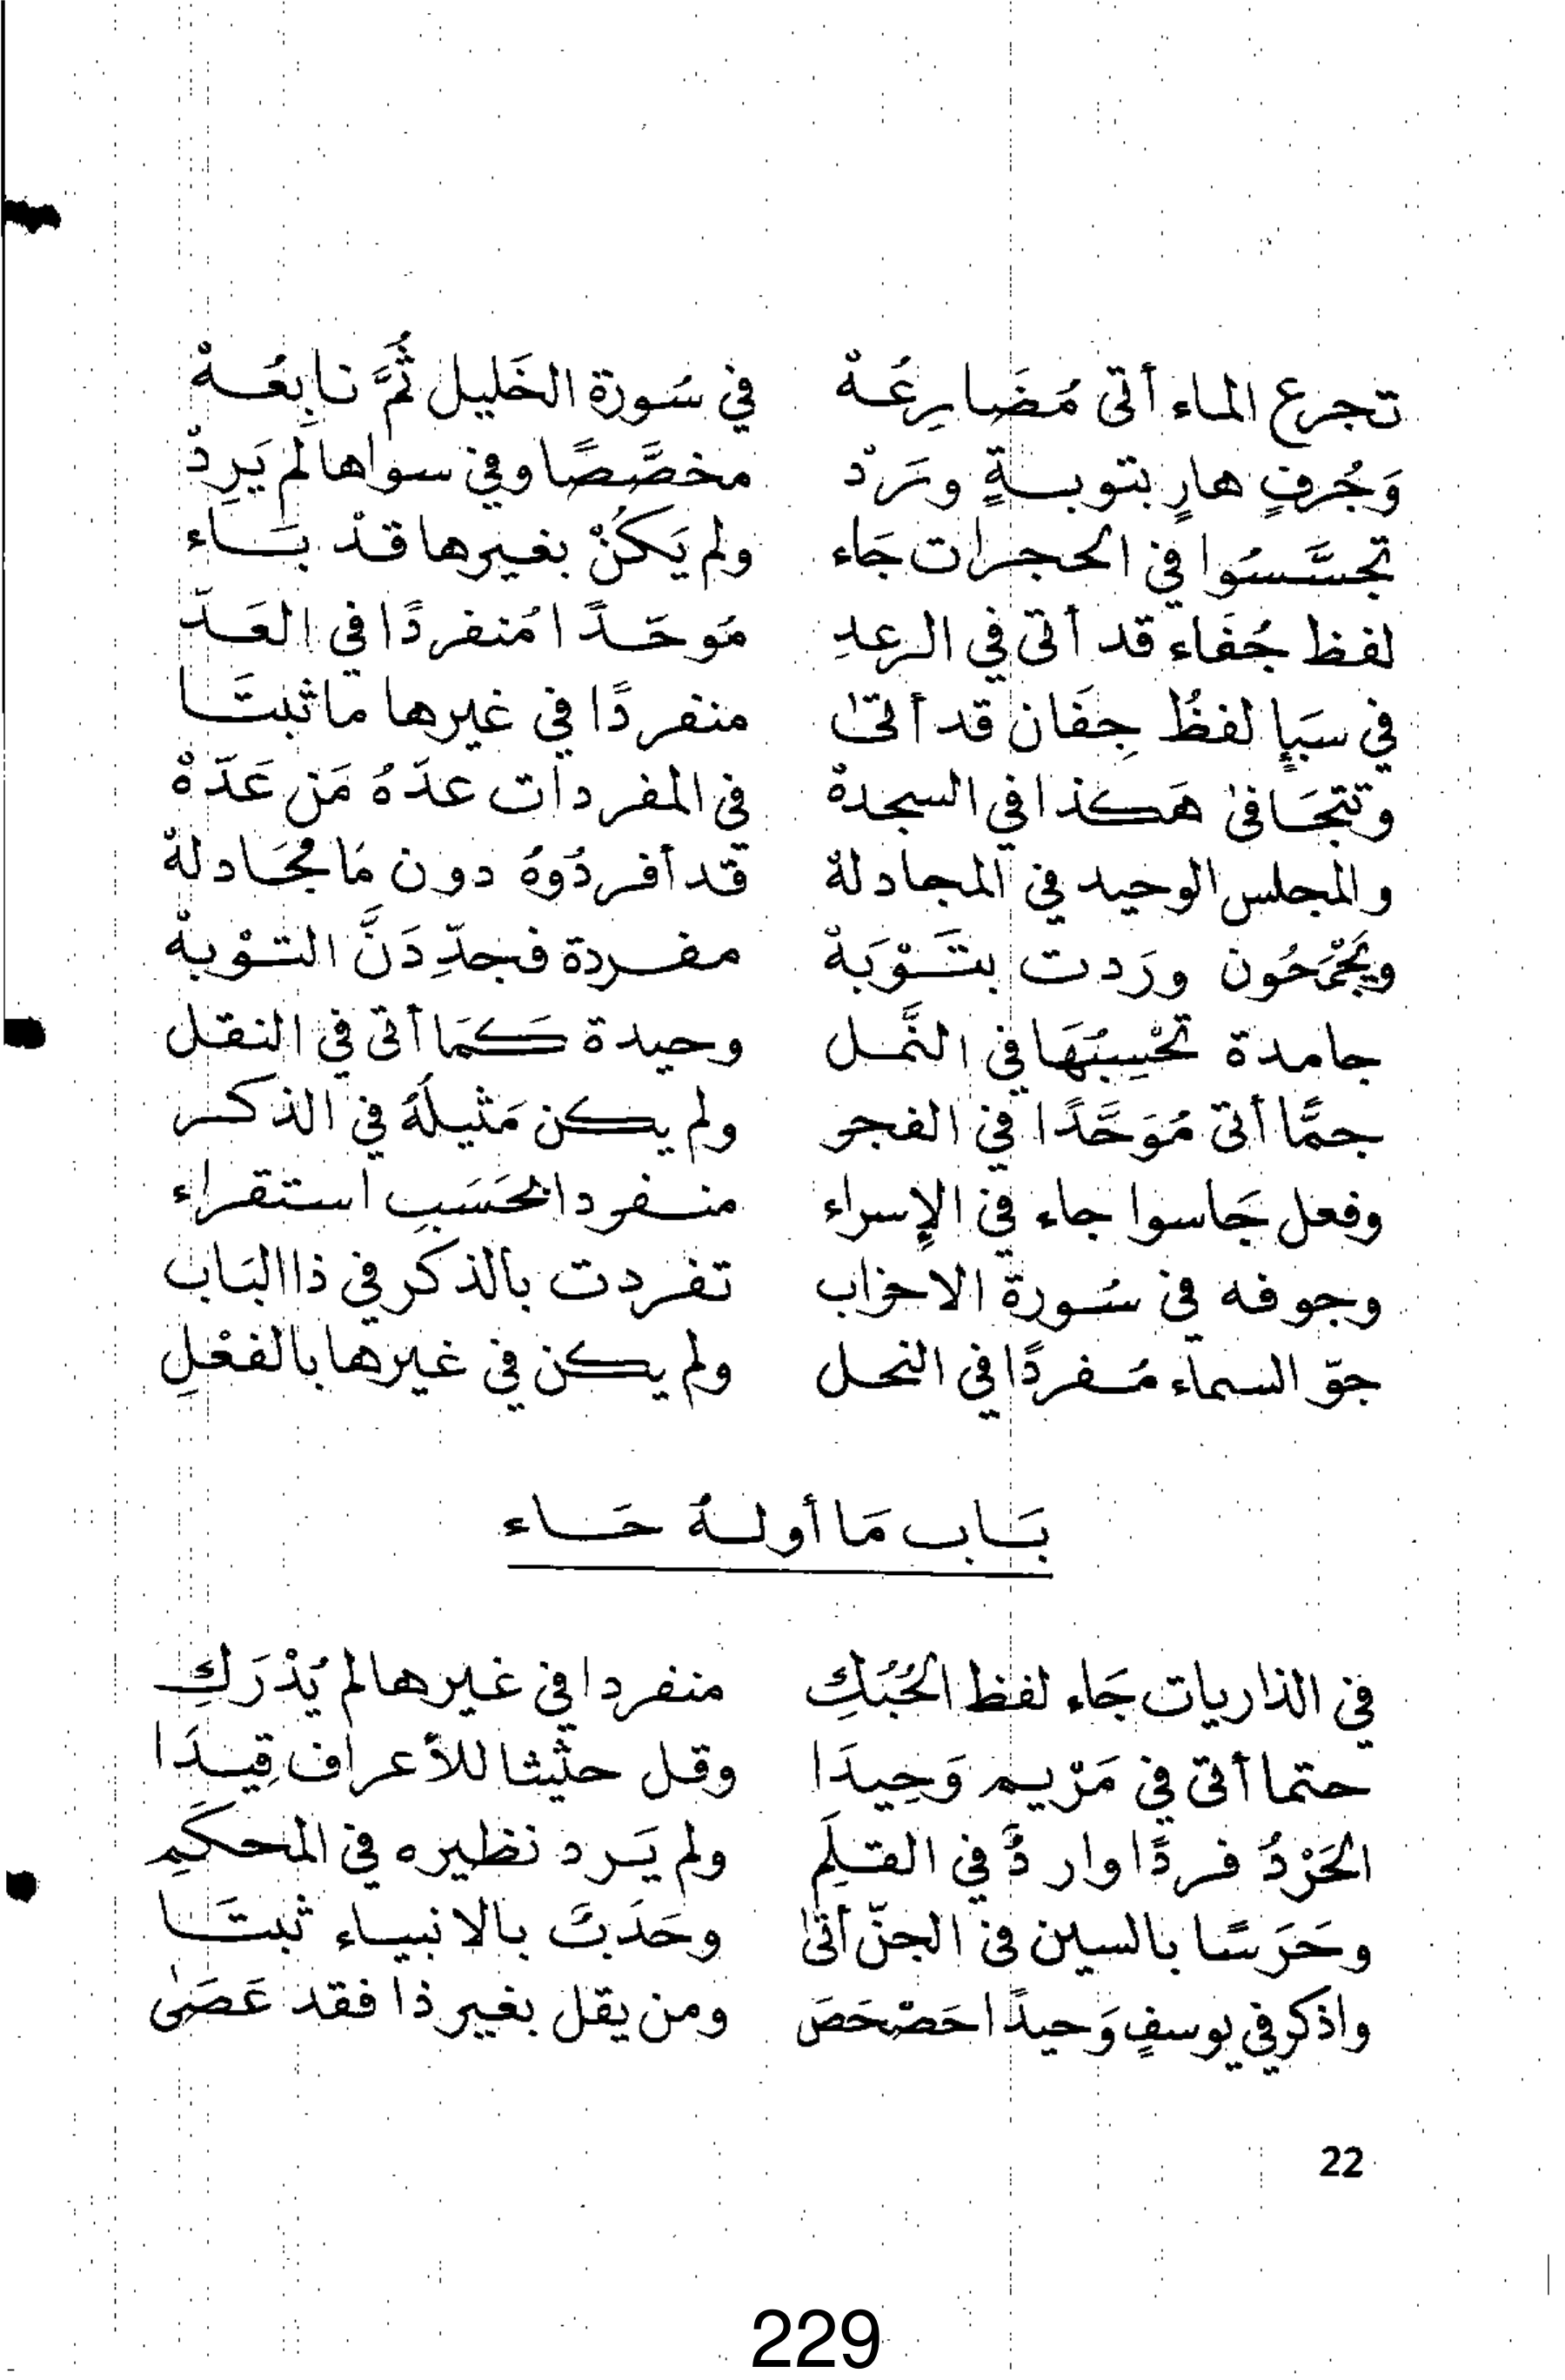 تجرع الماء أتى مُضَارِعُهْ في سُورة الخَليل ثُمَّ نابِعُهْ
وَجُرفٍ هارٍ بتوبةٍ ورَدْ مخصَّصًا وفي سواها لم يَرِدْ
تجسَّسُوا في الحجرات جَاء ولم يَكُنْ بغيرها قدْ بَاء
لفظ جُفَاء قد أتى في الرعدِ مُوحَّدًا مُنفردًا في العَدّ
في سَبَإٍ لفظُ جِفَان قد أتىٰ منفردًا في غيرها ما ثبتَا
وتتجَافىٰ هَكذا في السجدهْ في المفردات عدّهُ مَن عَدّهْ
والمجلس الوحيد في المجادلهْ قد أفردُوهُ دون مَا مُجَادلهْ
ويَجْمَحُون ورَدت بتَوْبَهْ مفردة فجدِّدَنَّ التوْبهْ
جامدة تحْسِبُهَا في النَّمل وحيدة كَمَا أتى في النقل
جمًّا أتى مُوَحَّدًا في الفجر ولم يكن مَثيلَهُ في الذكر
وفعل جَاسوا جاء في الإسراء منفردا بحَسَبِ استقراء
وجوفه في سُورة الاحزاب تفردت بالذكر في ذا البَاب
جوّ السماء مُفردًا في النحل ولم يكن في غيرها بالفعْلِ
بَاب مَا أولهُ حَاء
في الذاريات جَاء لفظ الحُبُكِ منفردا في غيرها لم يُدْرَكِ
حتما أتى في مَرْيم وَحِيدَا وقل حثيثا للأعراف قِيدَا
الحَرْدُ فردًا واردٌ في القلَمِ ولم يَرد نظيره في المحكَمِ
وحَرَسًا بالسين في الجنّ أتىٰ وحَدَبٌ بالانبياء ثبتَا
واذكر في يوسفٍ وَحيدًا حَصْحَصَ ومن يقل بغير ذا فقد عَصَىٰ
22
229